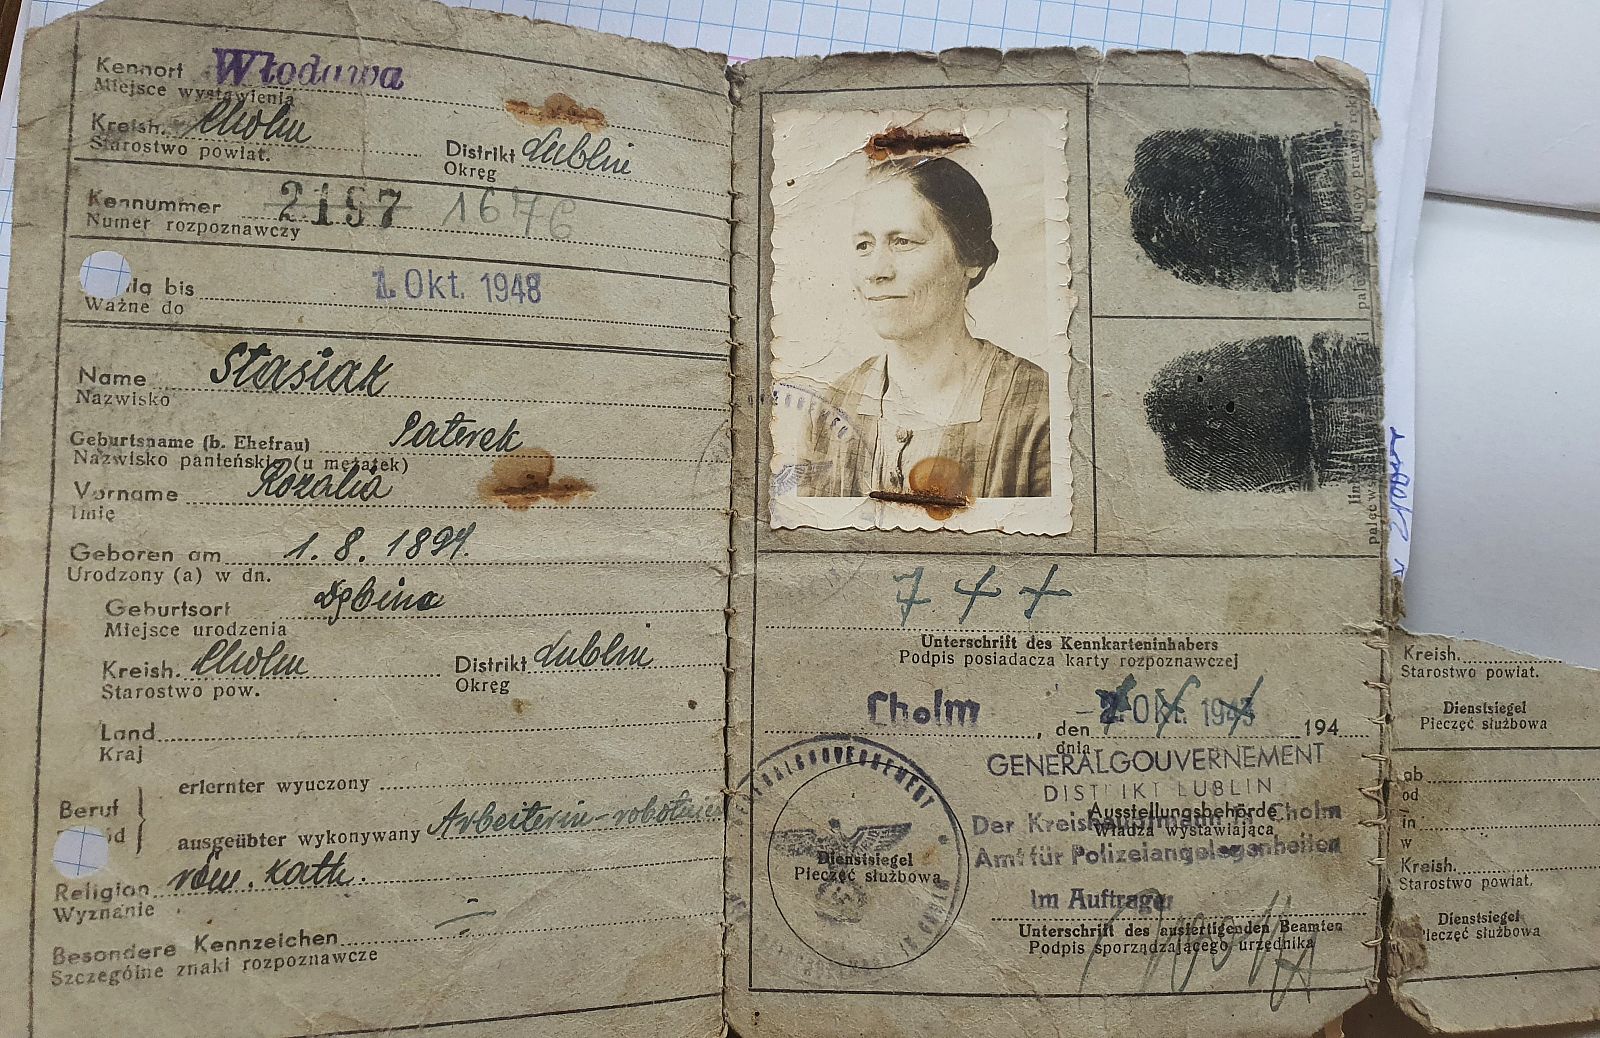 Kennort Włodawa
Miejsce wystawienia
Kreish. Cholm
Starostwo powiat.
Distrikt Lublin
Okręg
Kennummer 2197 1676
Numer rozpoznawczy
bis 1. Okt. 1948
Ważne do
Name Stasiak
Nazwisko
Geburtsname (b. Ehefrau) Paterek
Nazwisko panieńskie (u mężatek)
Vorname Rozalia
Imię
Geboren am 1. 8. 1894.
Urodzony (a) w dn.
Geburtsort Dębina
Miejsce urodzenia
Kreish. Cholm
Starostwo pow.
Distrikt Lublin
Okręg
Land
Kraj
Beruf
erlernter wyuczony
ausgeübter wykonywany Arbeiterin-robotnica
Religion röm. kath.
Wyznanie
Besondere Kennzeichen
Szczególne znaki rozpoznawcze
+ + +
Unterschrift des Kennkarteninhabers
Podpis posiadacza karty rozpoznawczej
Cholm, den 2. Okt. 1943 194
dnia
GENERALGOUVERNEMENT
DISTRIKT LUBLIN
Ausstellungsbehörde
Władza wystawiająca
Der Kreishauptmann Cholm
Amt für Polizeiangelegenheiten
Im Auftrage
Unterschrift des ausfertigenden Beamten
Podpis sporządzającego urzędnika
GENERALGOUVERNEMENT
Dienstsiegel
Pieczęć służbowa
Kreish.
Starostwo powiat.
Dienstsiegel
Pieczęć służbowa
ab
od
in
w
Kreish.
Starostwo powiat.
Dienstsiegel
Pieczęć służbowa